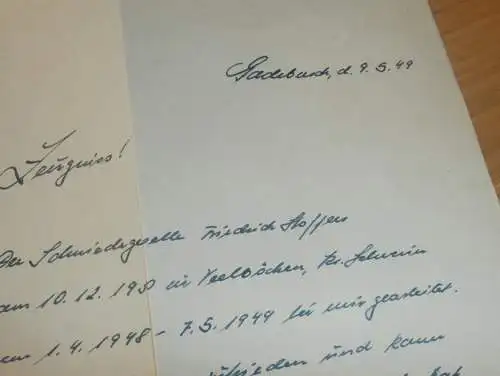 Gadebusch, d. 9.5.49
Zeugniss!
Der Schmiedegeselle Friedrich Steffen
am 10.12.19 in Veelböken, Kr. Schwerin
vom 1.4.1948 - 7.5.1949 bei mir gearbeitet.
zufrieden und kann